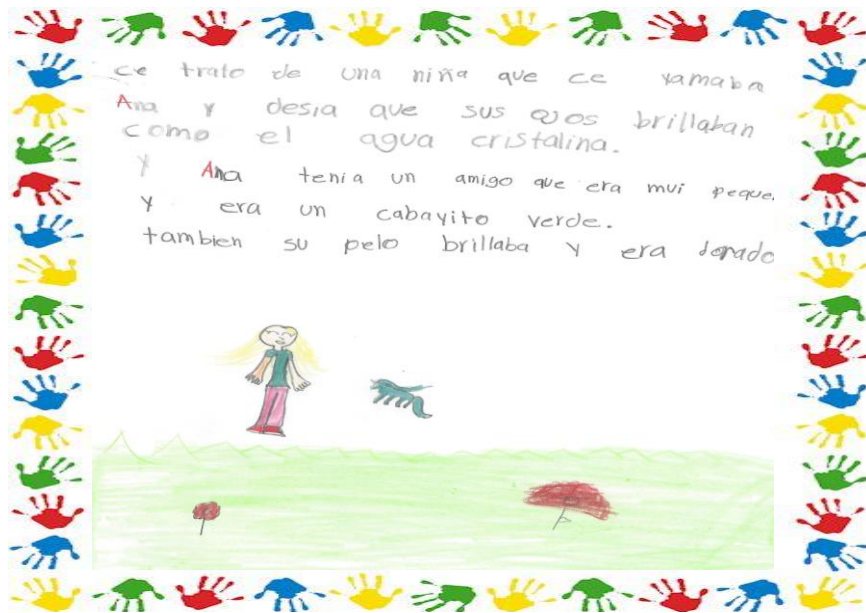 ce trato de una niña que ce yamaba
Ana y desia que sus ojos brillaban
como el agua cristalina.
y Ana tenia un amigo que era mui peque
y era un cabayito verde.
tambien su pelo brillaba y era dorado